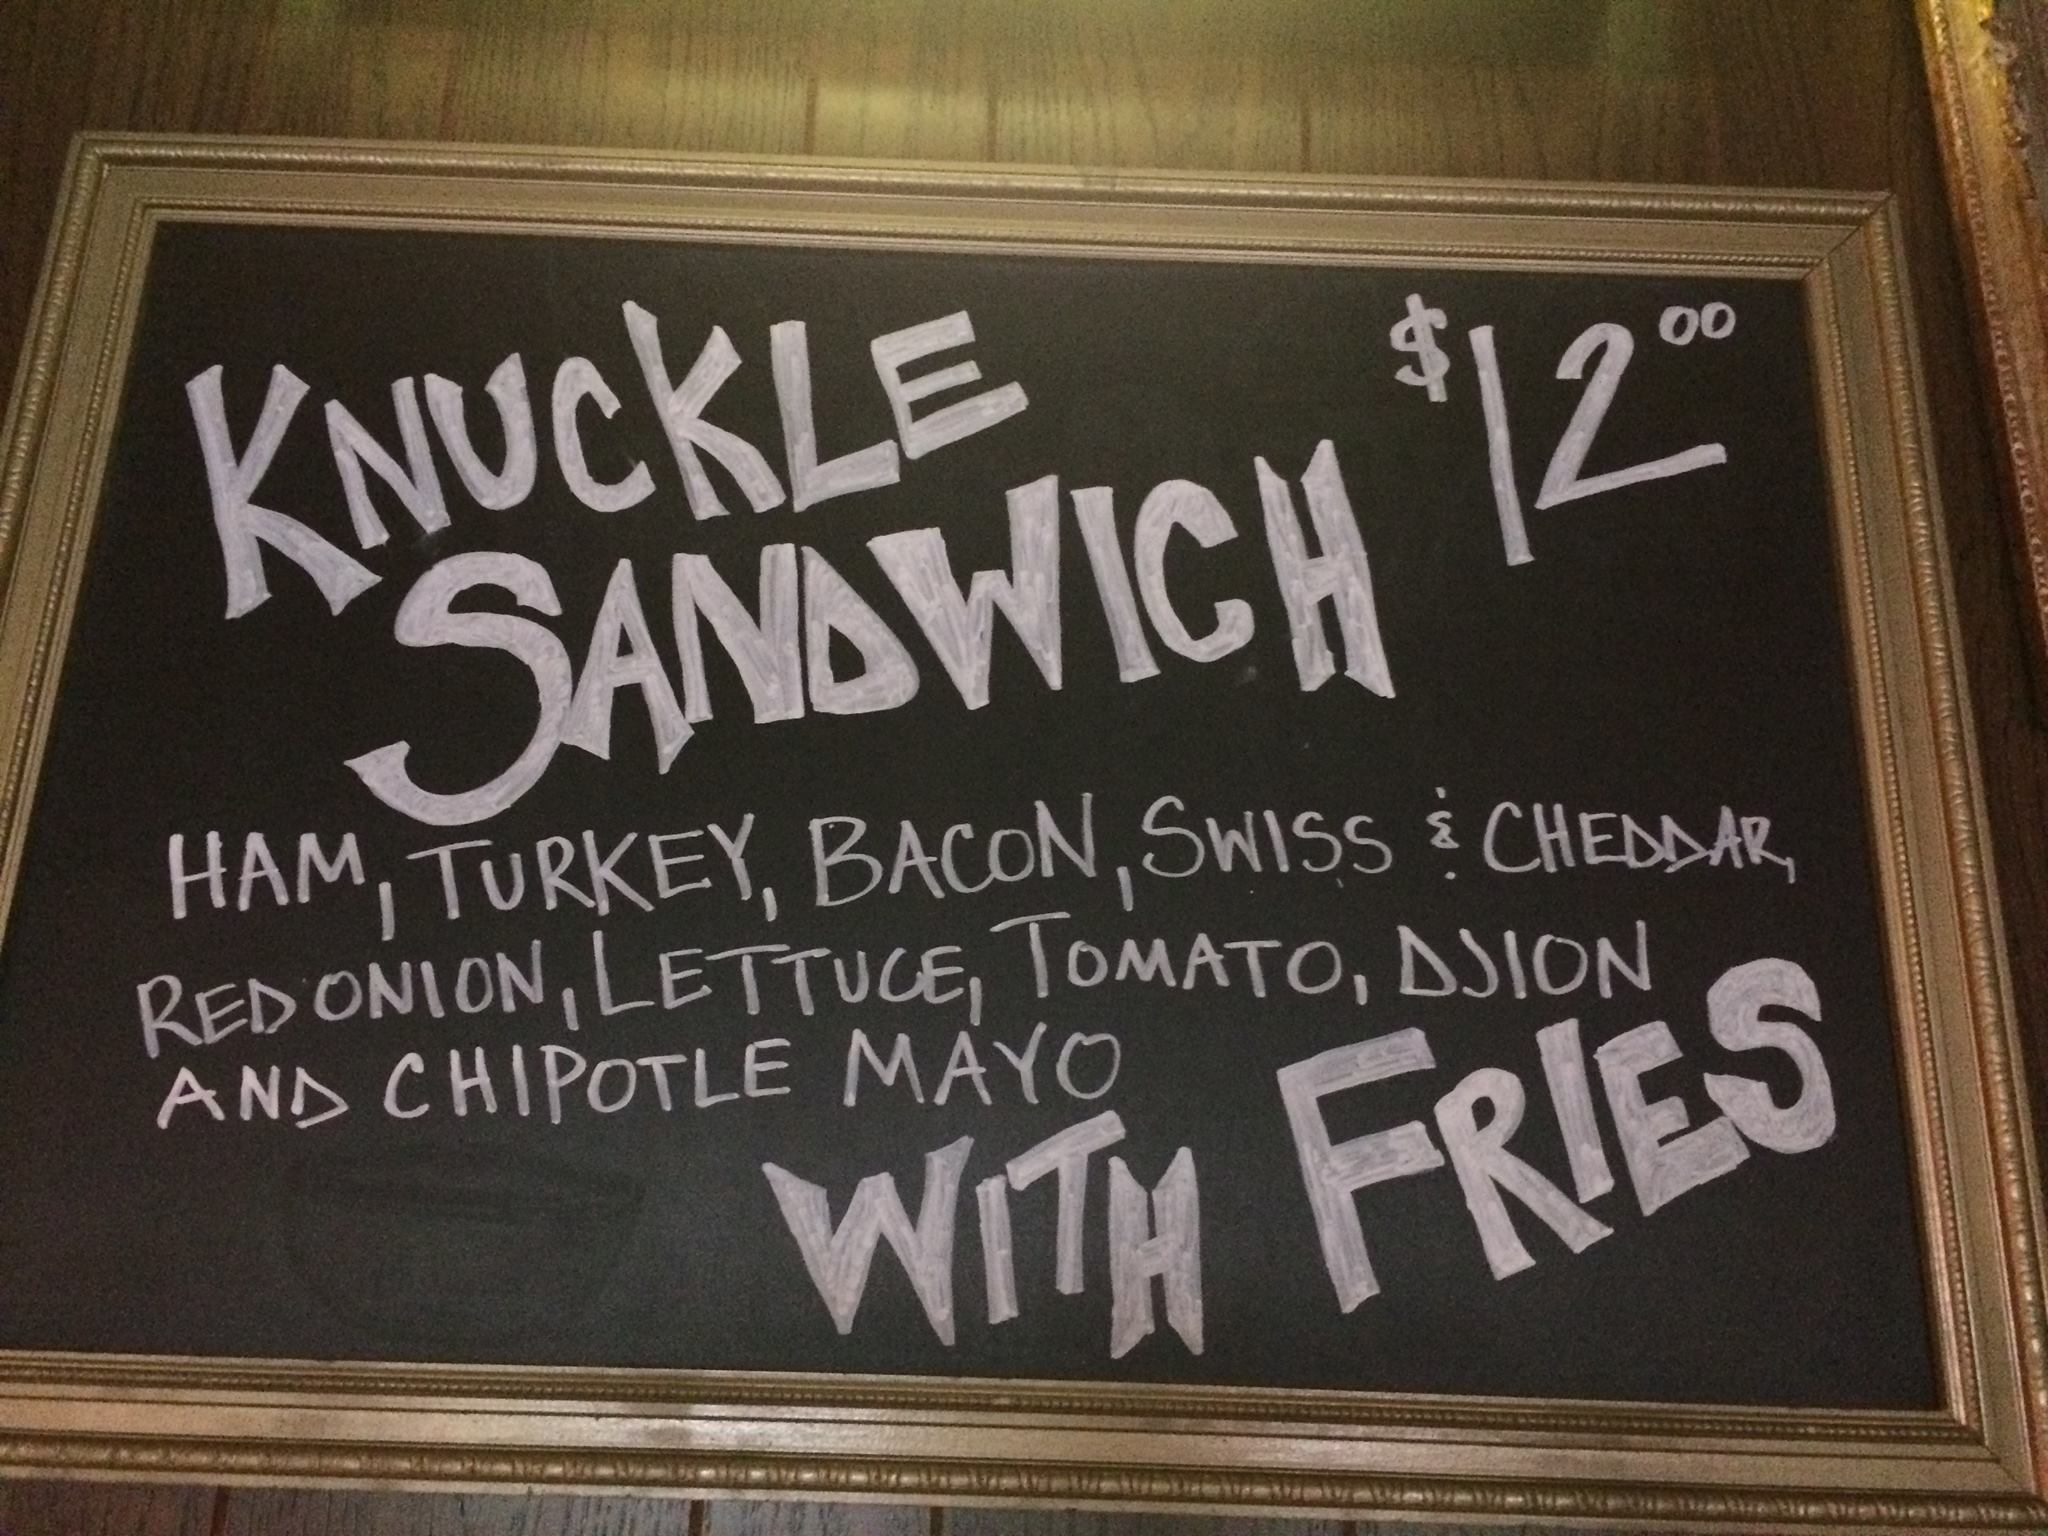 KNUCKLE $12.00
SANDWICH
HAM, TURKEY, BACON, SWISS & CHEDDAR,
RED ONION, LETTUCE, TOMATO, DJION
AND CHIPOTLE MAYO
WITH FRIES